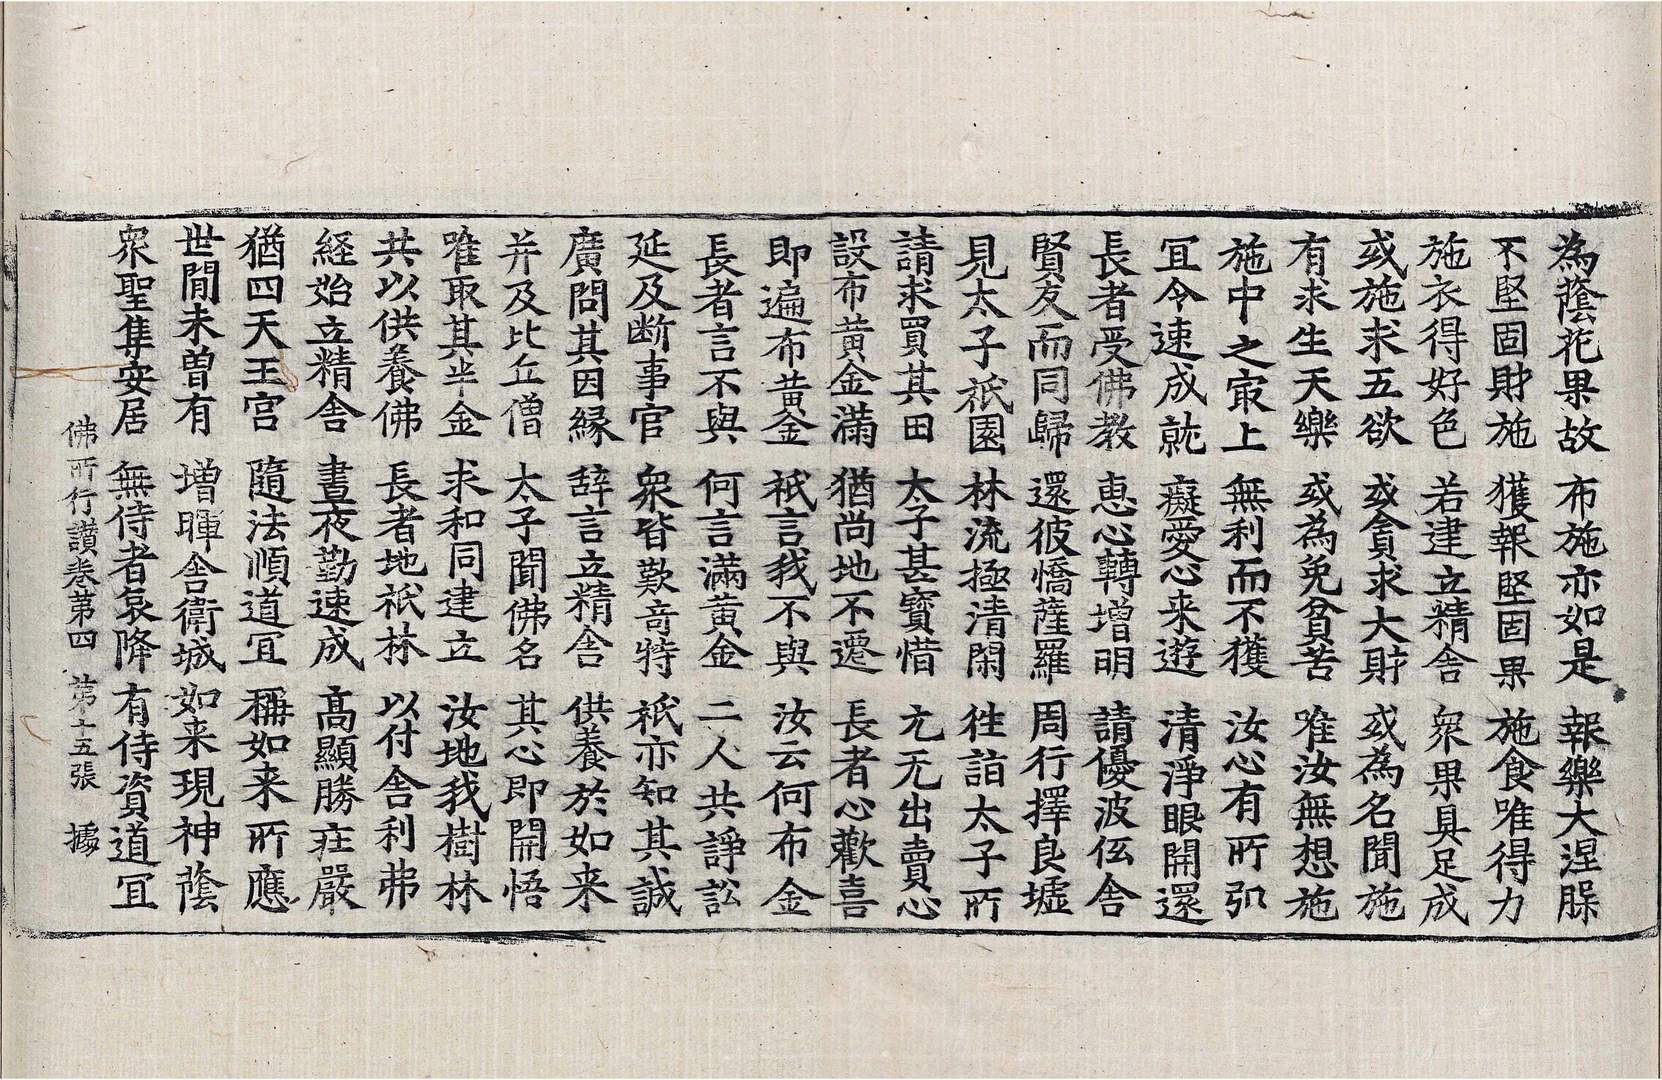 為蔭花果故　布施亦如是　報樂大涅槃
不堅固財施　獲報堅固果　施食唯得力
施衣得好色　若建立精舎　衆果具足成
或施求五欲　或貪求大財　或為名聞施
有求生天樂　或為免貧苦　唯汝無想施
施中之㝡上　無利而不獲　汝心有所弘
冝令速成就　癡愛心来遊　清淨眼開還
長者受佛教　恵心轉増明　請優波伭舎
賢友而同歸　還彼憍薩羅　周行擇良墟
見太子祇園　林流極清閑　徃詣太子所
請求買其田　太子甚寳惜　尢无出賣心
設布黄金滿　猶尚地不遷　長者心歡喜
即遍布黄金　祇言我不與　汝云何布金
長者言不與　何言滿黄金　二人共諍訟
延及断事官　衆皆歎竒特　祇亦知其誠
廣問其因縁　辞言立精舎　供養於如来
并及比丘僧　太子聞佛名　其心即開悟
唯取其半金　求和同建立　汝地我樹林
共以供養佛　長者地祇林　以付舎利弗
経始立精舎　晝夜勤速成　髙顯勝荘嚴
猶四天王宫　隨法順道冝　稱如来所應
世間未曽有　増暉舎衛城　如来現神蔭
衆聖集安居　無侍者哀降　有侍資道冝
佛所行讃巻苐四　苐十五張　㩀